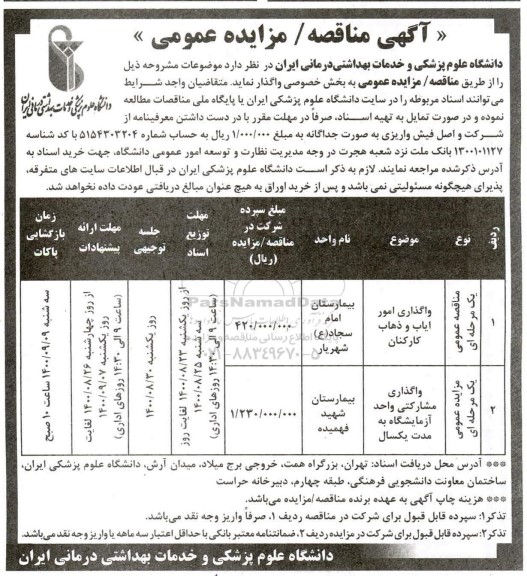 « آگهی مناقصه/ مزایده عمومی »
دانشگاه علوم پزشکی و خدمات بهداشتی درمانی ایران
دانشگاه علوم پزشکی و خدمات بهداشتی‌درمانی ایران در نظر دارد موضوعات مشروحه ذیل
را از طریق مناقصه/ مزایده عمومی به بخش خصوصی واگذار نماید. متقاضیان واجد شرایط
می‌توانند اسناد مربوطه را در سایت دانشگاه علوم پزشکی ایران یا پایگاه ملی مناقصات مطالعه
نموده و در صورت تمایل به تهیه اسناد، صرفاً در مهلت مقرر با در دست داشتن معرفینامه از
شرکت و اصل فیش واریزی به صورت جداگانه به مبلغ ۱/۰۰۰/۰۰۰ ریال به حساب شماره ۵۱۵۴۳۰۳۲۰۴ با کد شناسه
۱۳۰۰۱۰۱۱۲۷ بانک ملت نزد شعبه هجرت در وجه مدیریت نظارت و توسعه امور عمومی دانشگاه، جهت خرید اسناد به
آدرس ذکرشده مراجعه نمایند. لازم به ذکر است دانشگاه علوم پزشکی ایران در قبال اطلاعات سایت های متفرقه،
پذیرای هیچگونه مسئولیتی نمی باشد و پس از خرید اوراق به هیچ عنوان مبالغ دریافتی عودت داده نخواهد شد.
ردیف
نوع
موضوع
نام واحد
مبلغ سپرده
شرکت در
مناقصه/مزایده
(ریال)
مهلت
توزیع
اسناد
جلسه
توجیهی
مهلت ارائه
پیشنهادات
زمان
بازگشایی
پاکات
۱
مناقصه عمومی
یک مرحله ای
واگذاری امور
ایاب و ذهاب
کارکنان
بیمارستان
امام
سجاد(ع)
شهریار
۴۲۰/۰۰۰/۰۰۰
از روز یکشنبه ۱۴۰۰/۰۸/۲۳ لغایت روز
سه شنبه ۱۴۰۰/۰۸/۲۵
(ساعت ۹ الی ۱۴:۳۰ روزهای اداری)
روز یکشنبه ۱۴۰۰/۰۸/۳۰
از روز چهارشنبه ۱۴۰۰/۰۸/۲۶ لغایت
روز یکشنبه ۱۴۰۰/۰۹/۰۷
(ساعت ۹ الی ۱۴:۳۰ روزهای اداری)
سه شنبه ۱۴۰۰/۰۹/۰۹ ساعت ۱۰ صبح
۲
مزایده عمومی
یک مرحله ای
واگذاری
مشارکتی واحد
آزمایشگاه به
مدت یکسال
بیمارستان
شهید
فهمیده
۱/۲۳۰/۰۰۰/۰۰۰
ParsNamadData
۰۲۱-۸۸۳۴۹۶۷۰-۵
*** آدرس محل دریافت اسناد: تهران، بزرگراه همت، خروجی برج میلاد، میدان آرش، دانشگاه علوم پزشکی ایران،
ساختمان معاونت دانشجویی فرهنگی، طبقه چهارم، دبیرخانه حراست
*** هزینه چاپ آگهی به عهده برنده مناقصه/مزایده می‌باشد.
تذکر۱: سپرده قابل قبول برای شرکت در مناقصه ردیف ۱، صرفاً واریز وجه نقد می‌باشد.
تذکر۲: سپرده قابل قبول برای شرکت در مزایده ردیف ۲، ضمانتنامه معتبر بانکی با حداقل اعتبار سه ماهه یا واریز وجه نقد می‌باشد.
دانشگاه علوم پزشکی و خدمات بهداشتی درمانی ایران